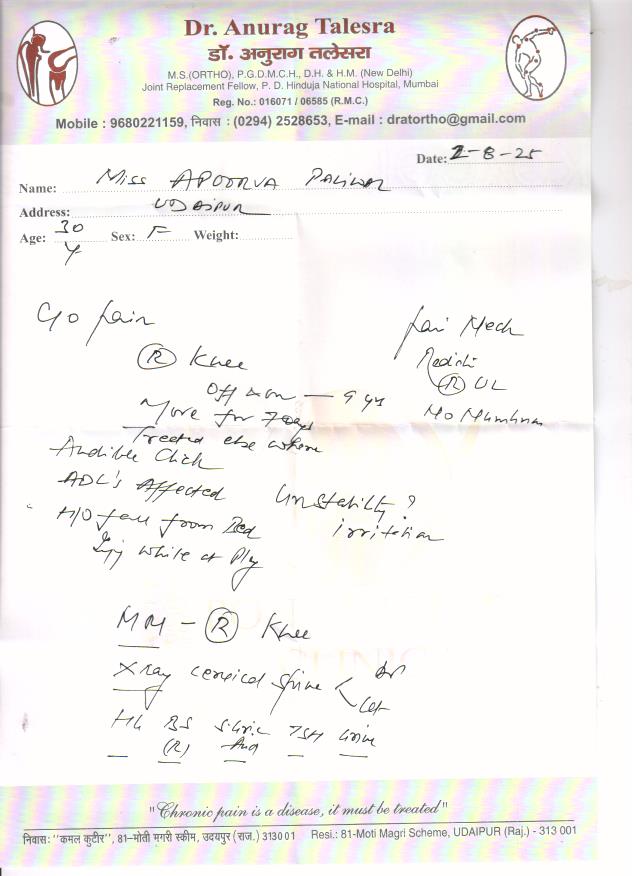 Dr. Anurag Talesra
डॉ. अनुराग तलेसरा
M.S.(ORTHO), P.G.D.M.C.H., D.H. & H.M. (New Delhi)
Joint Replacement Fellow, P. D. Hinduja National Hospital, Mumbai
Reg. No.: 016071 / 06585 (R.M.C.)
Mobile : 9680221159, निवास : (0294) 2528653, E-mail : dratortho@gmail.com
Date: 2-8-25
Name: Miss APOORVA PALIWAL
Address: UDAIPUR
Age: 30 Y Sex: F Weight:
C/o Pain
(R) Knee
Off & on — 9 yrs
More for 7 days
Treated else where
Audible Click
ADL's Affected
H/O fall from Bed
Inj while at Play
Pain Neck
(R) UL
No Numbness
Unstability ?
irritation
MM - (R) Knee
Xray cervical Spine < AP
Lat
BS
(R)
S. Uric
Acid
TSH
Urine
"Chronic pain is a disease, it must be treated"
निवास: "कमल कुटीर", 81-मोती मगरी स्कीम, उदयपुर (राज.) 313001 Resi.: 81-Moti Magri Scheme, UDAIPUR (Raj.) - 313 001